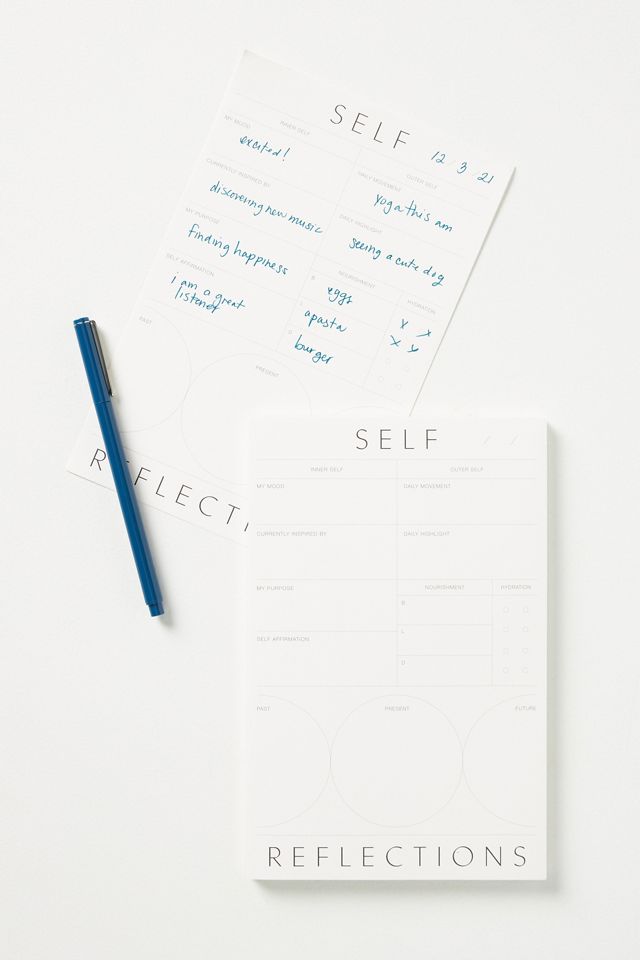 SELF
12 3 21
MY MOOD
INNER SELF
OUTER SELF
excited!
DAILY MOVEMENT
yoga this am
CURRENTLY INSPIRED BY
discovering new music
DAILY HIGHLIGHT
seeing a cute dog
MY PURPOSE
finding happiness
NOURISHMENT
HYDRATION
B
eggs
x x
SELF AFFIRMATION
i am a great
listener
L
apasta
x x
D
burger
PAST
PRESENT
REFLECTI
SELF / /
INNER SELF
OUTER SELF
MY MOOD
DAILY MOVEMENT
CURRENTLY INSPIRED BY
DAILY HIGHLIGHT
MY PURPOSE
NOURISHMENT
HYDRATION
B
L
SELF AFFIRMATION
D
PAST
PRESENT
FUTURE
REFLECTIONS